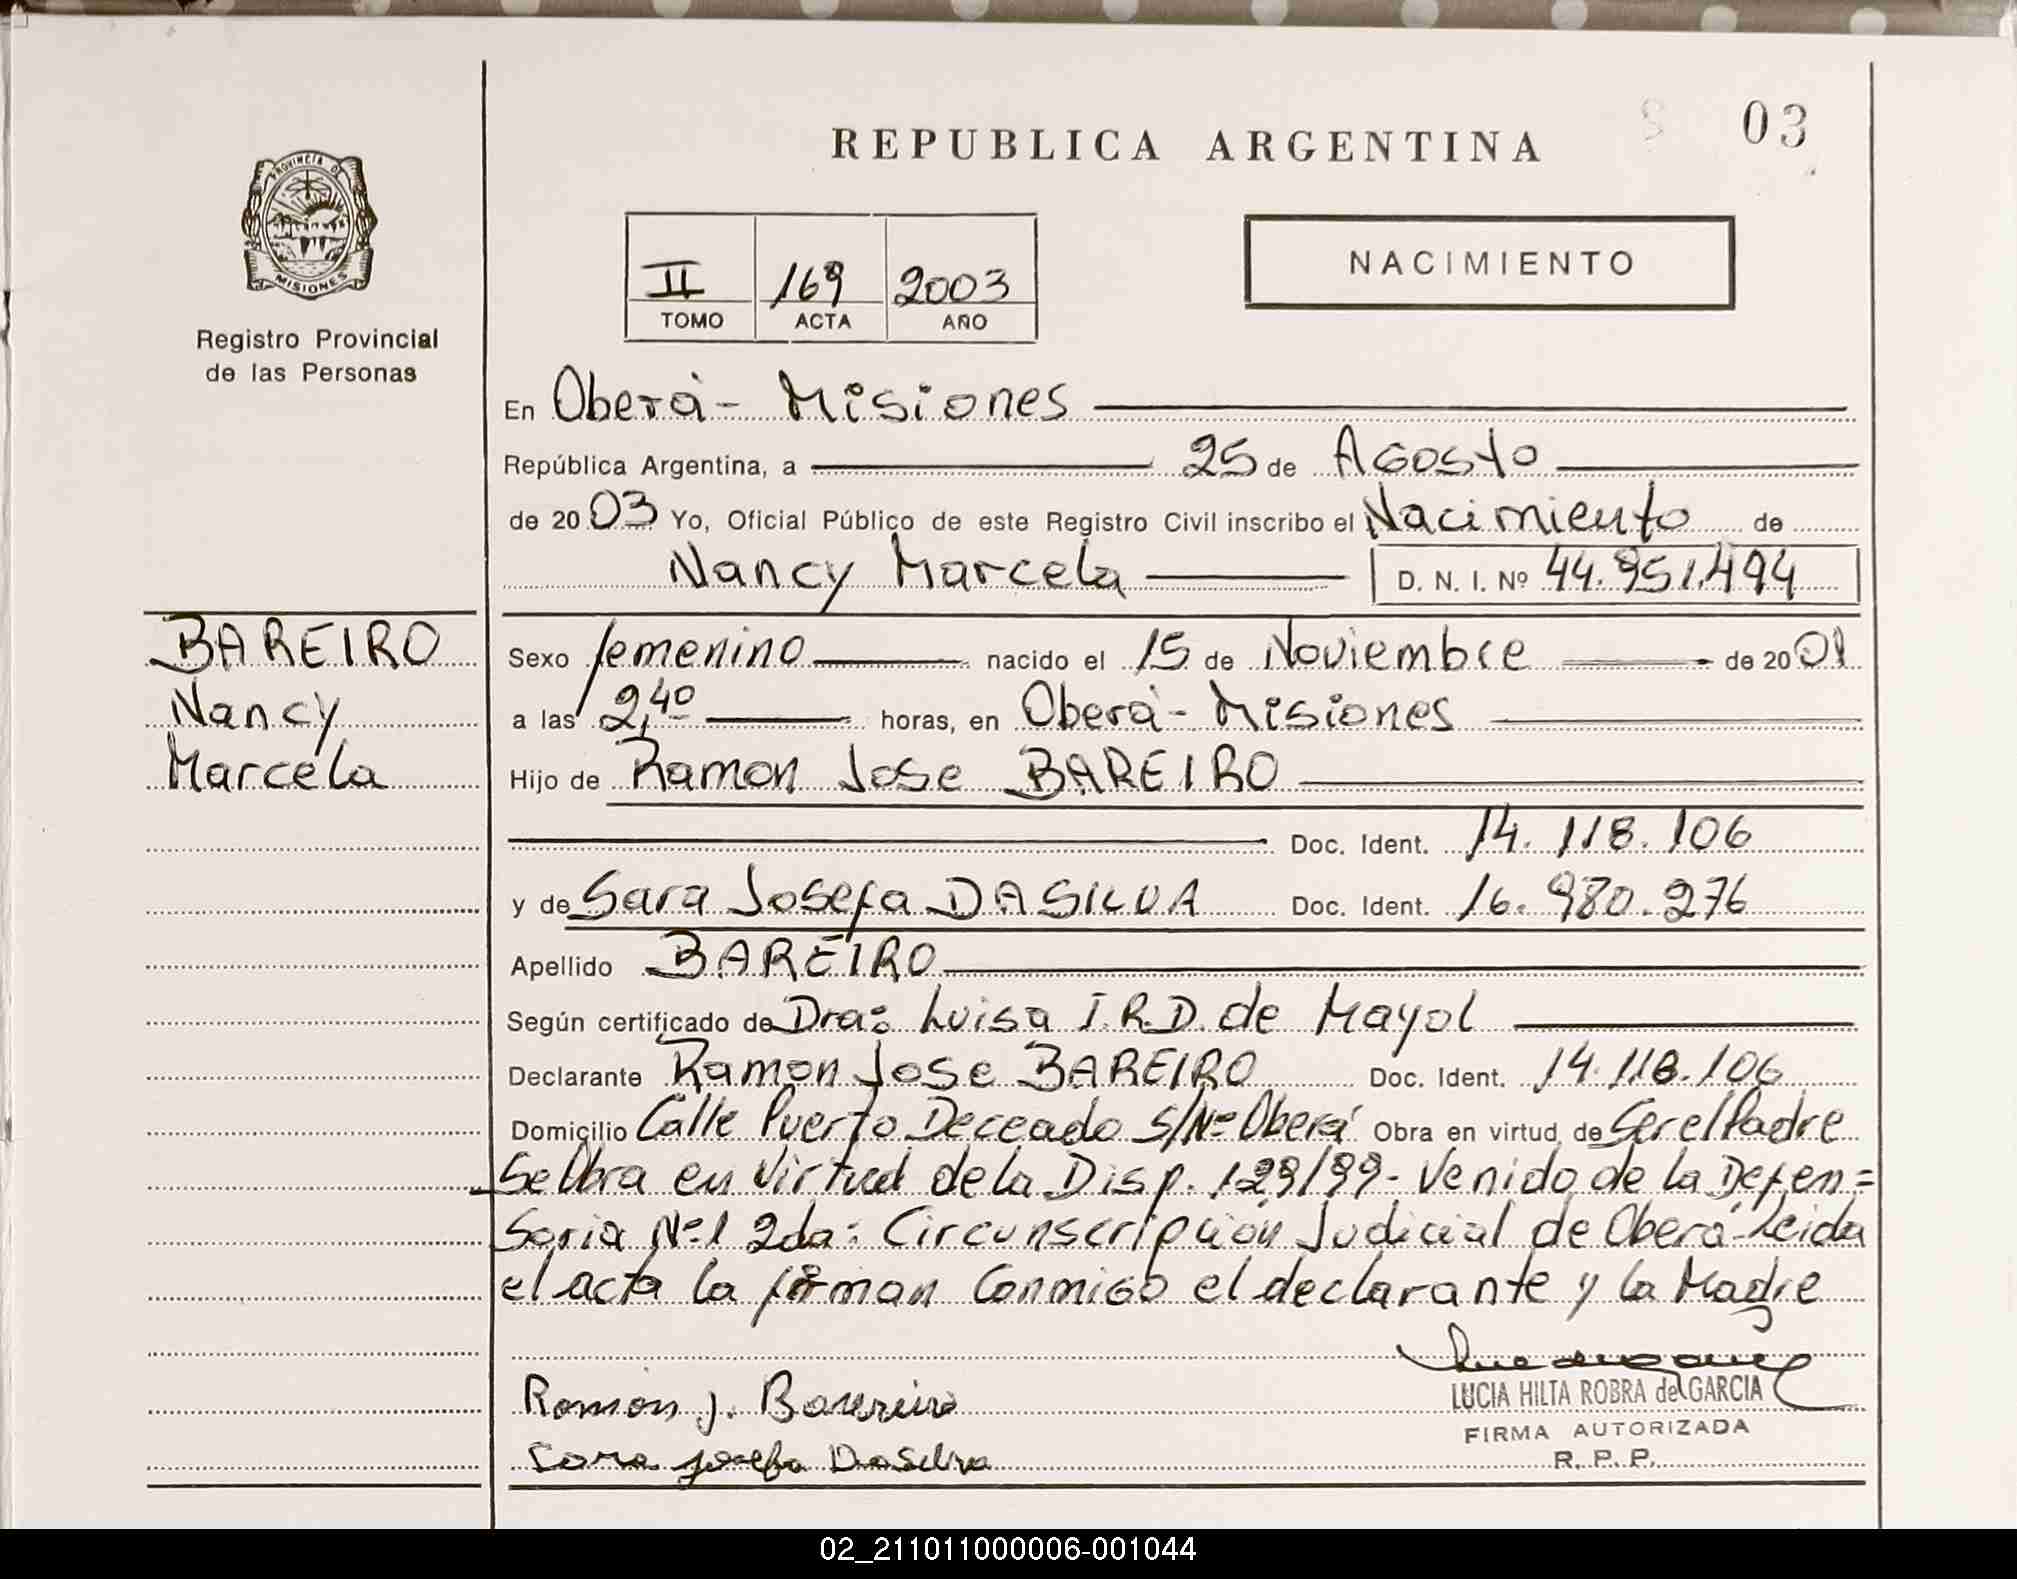 REPUBLICA ARGENTINA
03
PROVINCIA DE
MISIONES
Registro Provincial
de las Personas
II 169 2003
TOMO ACTA AÑO
NACIMIENTO
En Oberá - Misiones
República Argentina, a 25 de Agosto
de 2003 Yo, Oficial Público de este Registro Civil inscribo el Nacimiento de
Nancy Marcela D. N. I. Nº 44.951.494
BAREIRO
Nancy
Marcela
Sexo femenino nacido el 15 de Noviembre de 2001
a las 2,40 horas, en Oberá - Misiones
Hijo de Ramon Jose BAREIRO
Doc. Ident. 14.118.106
y de Sara Josefa DASILVA Doc. Ident. 16.980.276
Apellido BAREIRO
Según certificado de Dra: Luisa I.R.D. de Mayol
Declarante Ramon Jose BAREIRO Doc. Ident. 14.118.106
Domicilio Calle Puerto Deceado S/Nº Oberá Obra en virtud de Ser el Padre
Se Obra en Virtud de la Disp. 129/99 - Venido de la Defen=
Soria Nº 1 2da: Circunscripción Judicial de Oberá - Leida
el acta la firman Conmigo el declarante y la Madre
Ramón J. Barereiro
Sara Josefa DaSilva
LUCIA HILTA ROBRA de GARCIA
FIRMA AUTORIZADA
R. P. P.
02_211011000006-001044